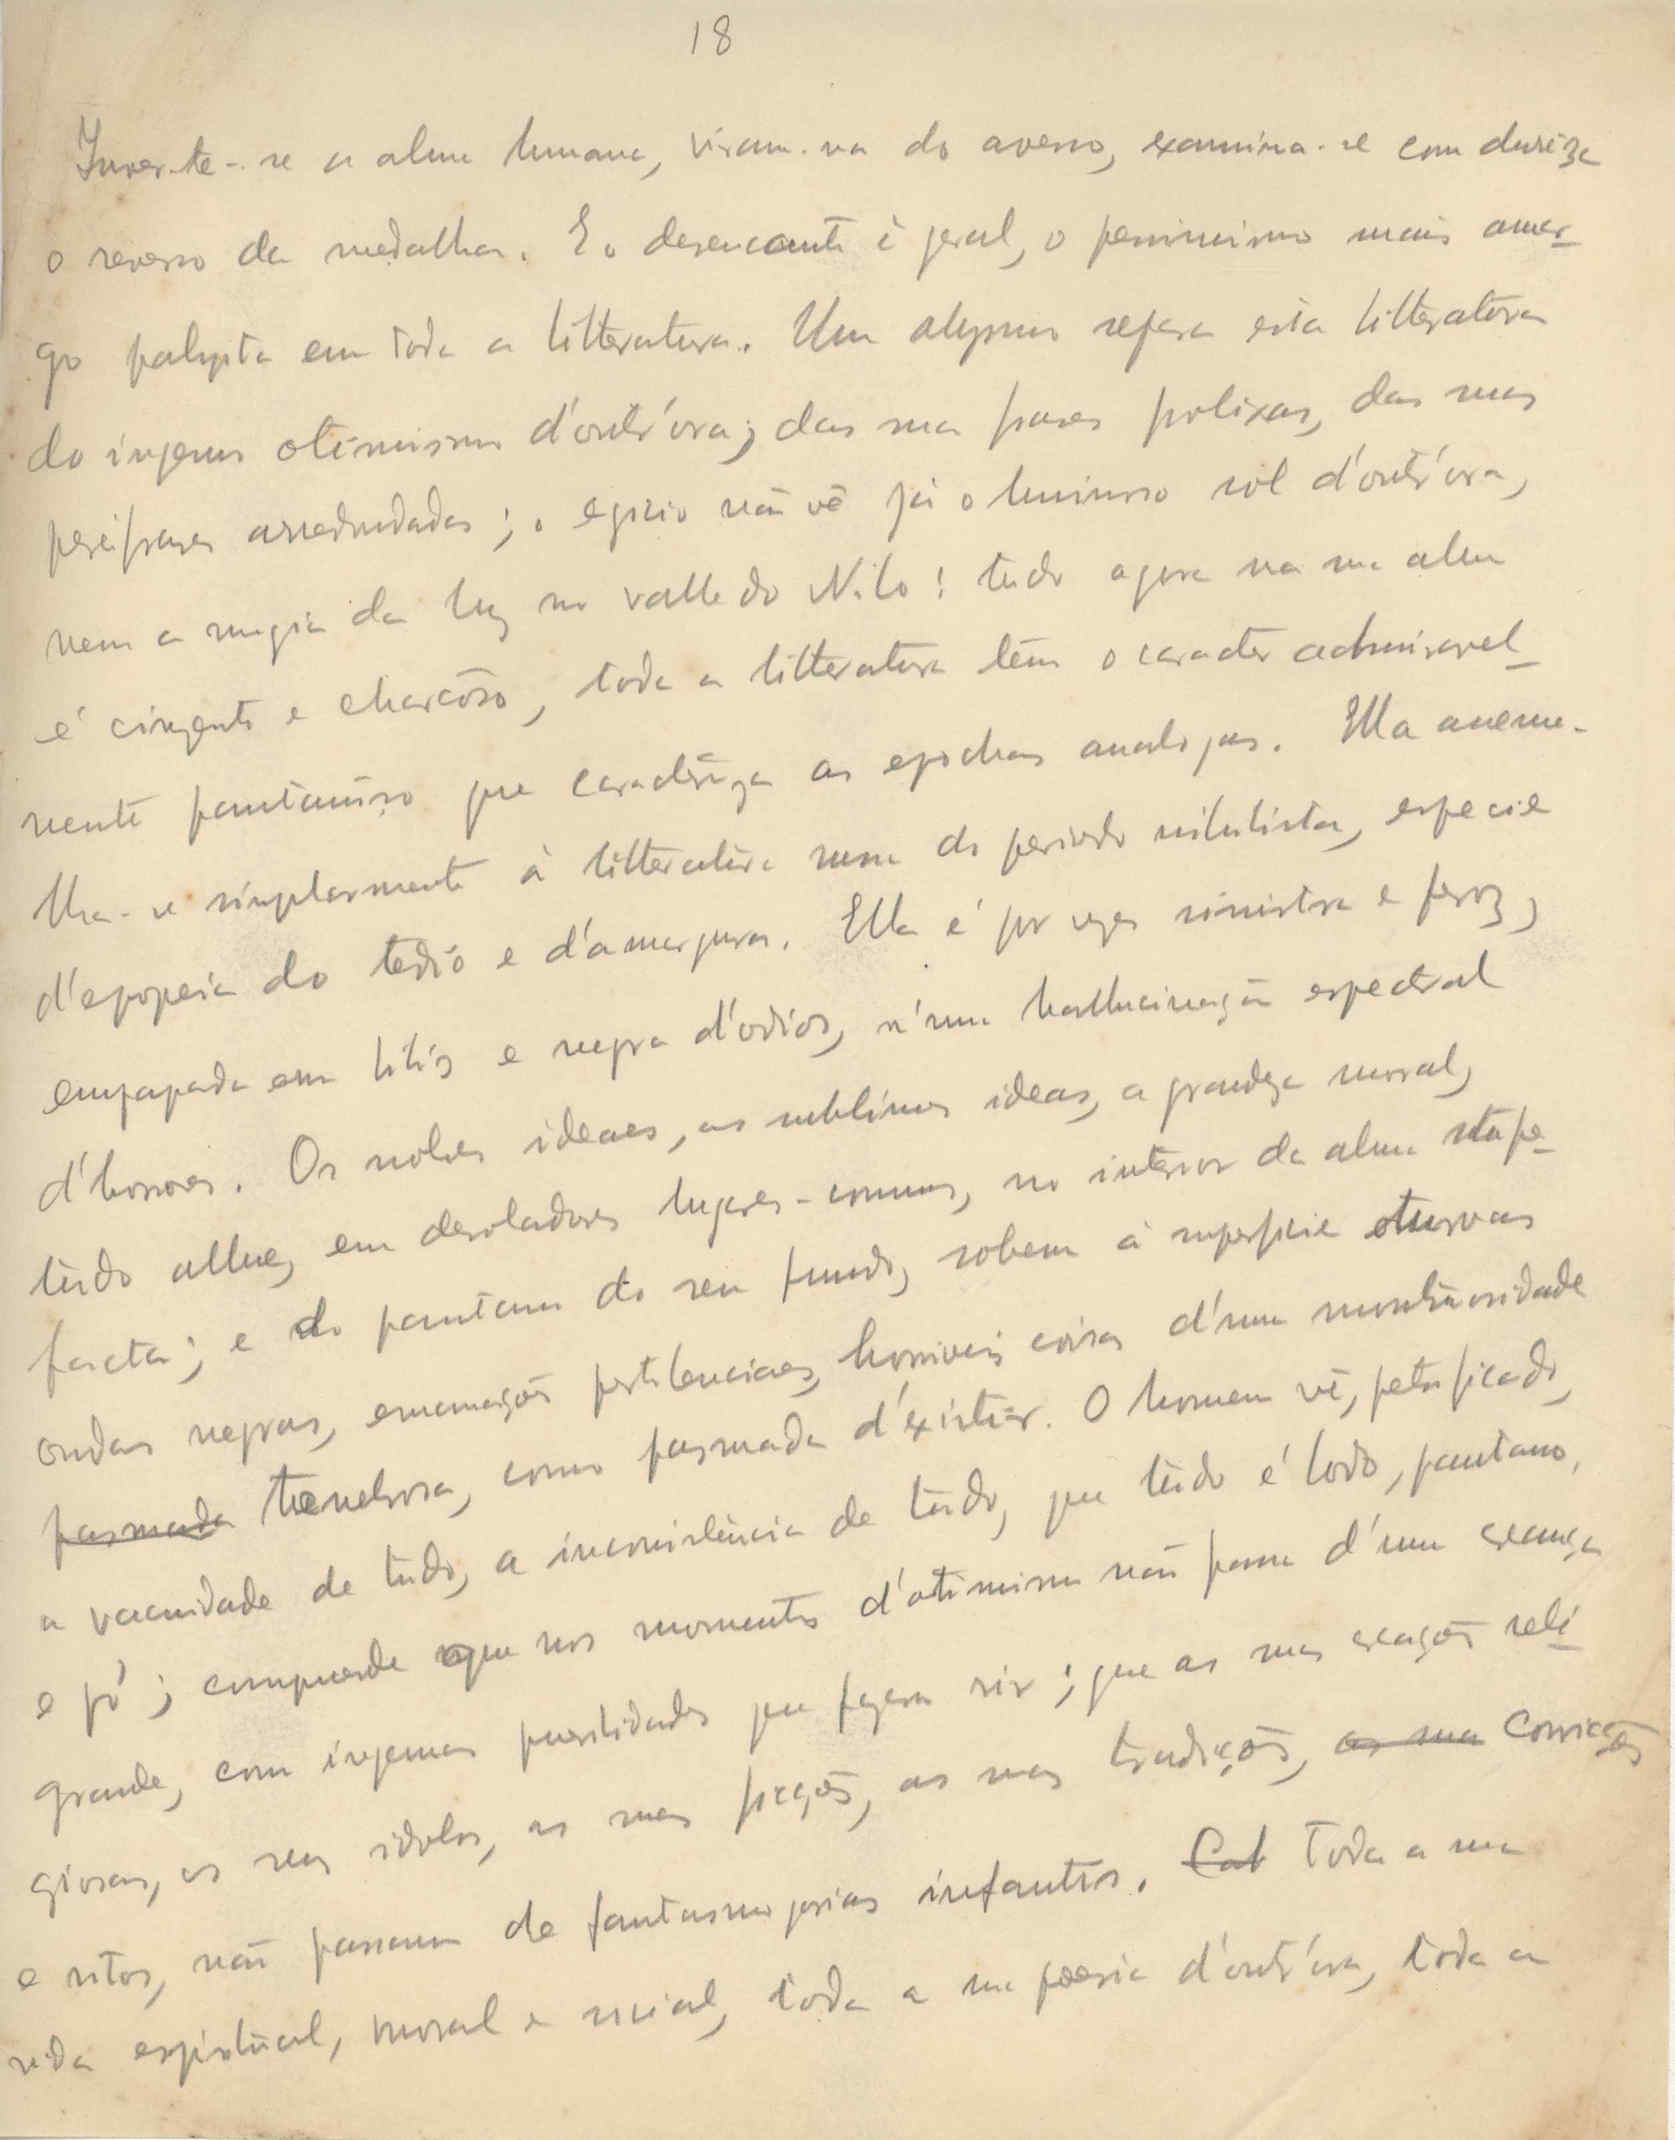 18
Inverte-se a alma humana, viram-na do avesso, examina-se com dureza
o reverso da medalha. E o desencanto é geral, o pessimismo mais amar-
go palpita em toda a litteratura. Um abysmo separa esta litteratura
do ingenuo otimismo d'outr'ora; das sua frases prolixas, das suas
perifrases arredondadas; o egicio não vê já o luminoso sol d'outr'ora,
nem a magia da luz no valle do Nilo: tudo agora na sua alma
é cinzento e charcôso, toda a litteratura têm o caracter admiravel-
mente pantanôso que caracteriza as epochas analogas. Ella aseme-
lha-se singularmente à litteratura russa do periodo niilista, especie
d'epopeia do tedio e d'amargura. Ella é por vezes sinistra e feroz,
empapada em bilis e negra d'odios, n'uma hallucinação espectral
d'horrores. Os nobres ideaes, as sublimes ideas, a grandeza moral,
tudo allue, em desoladores lugares-comuns, no interior da alma stupe-
facta; e do pantano do seu fundo, sobem à superficie oturvas
ondas negras, emanações pestilenciaes, horriveis coisas d'uma monstruosidade
pasmada tenebrosa, como pasmada d'existir. O homem vê, petrificado,
a vacuidade de tudo, a inconsistência de tudo, que tudo é lodo, pantano,
e pó; comprende que nos momentos d'otimismo não passa d'uma creança
grande, com ingenuas puerilidades que fazem rir; que as suas creações reli-
giosas, os seus idolos, as suas ficções, as suas tradições, as sua convicções
e ritos, não passam de fantasmagorias infantis. Cat Toda a sua
vida espiritual, moral e social, toda a sua poesia d'outr'ora, toda a